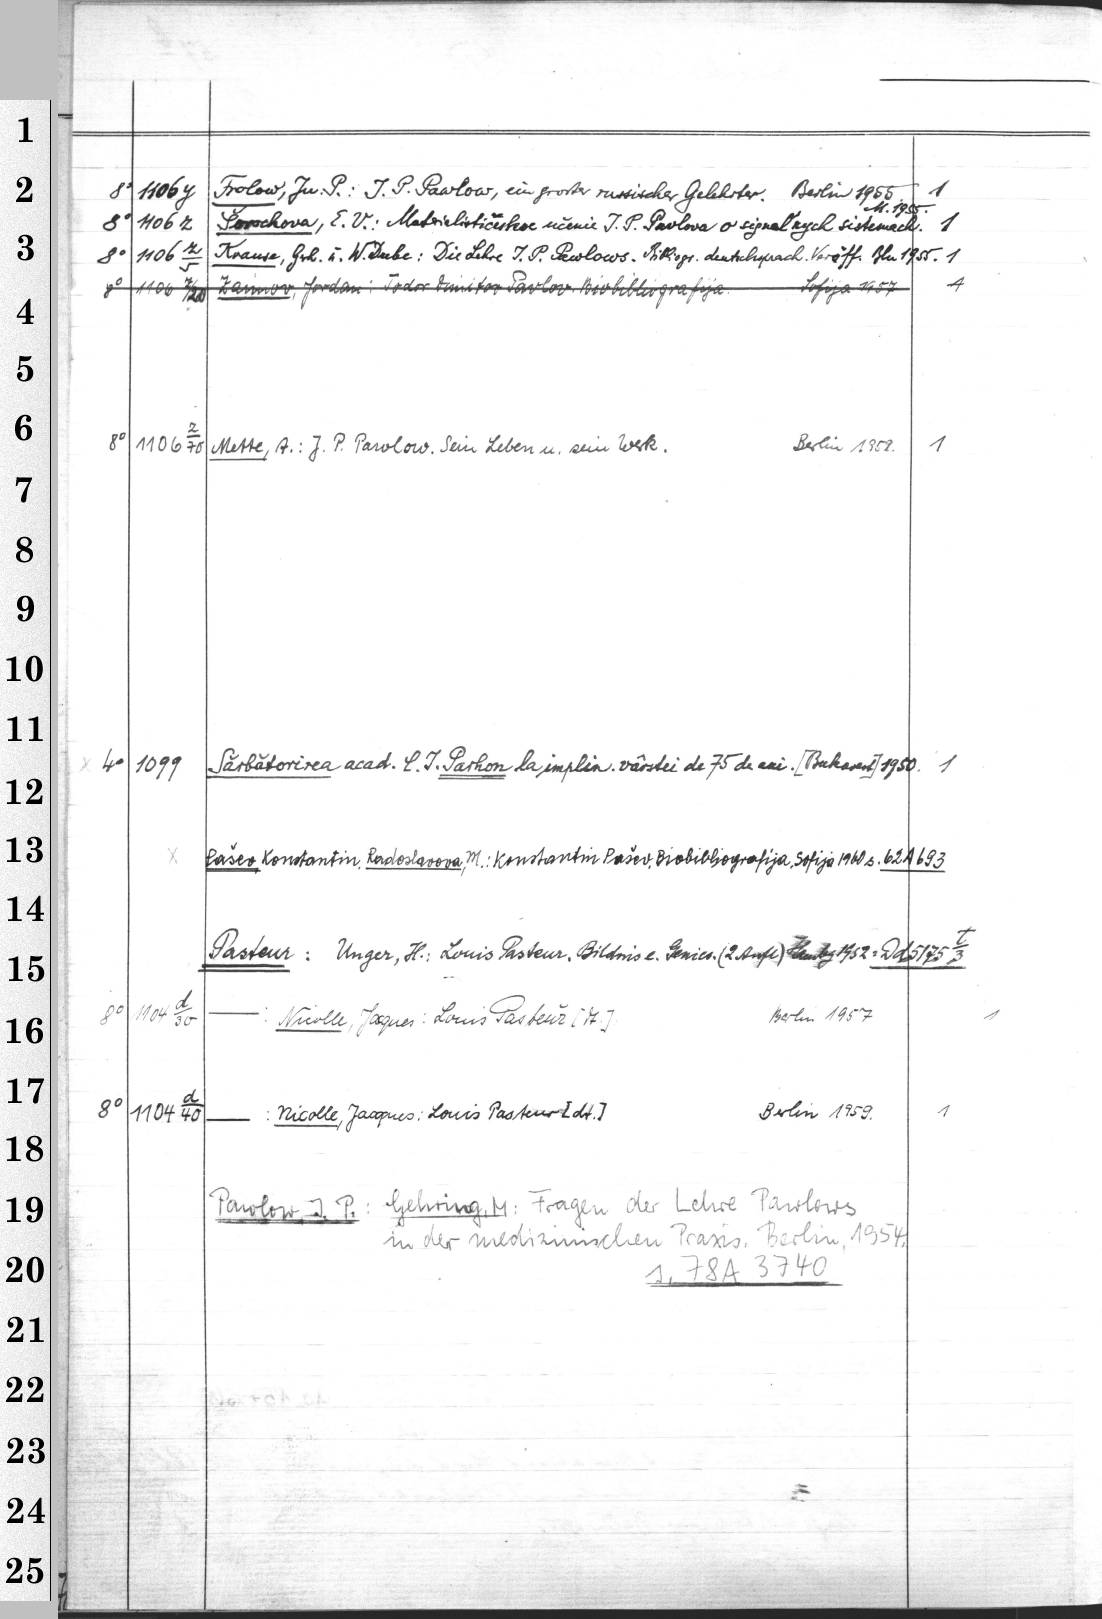 8° 1106y Frolow, Ju. P.: I. P. Pawlow, ein grosser russischer Gelehrter. Berlin 1955 1
M. 1955.
8° 1106 z Šorochova, E. V.: Materialističeskoe učenie I. P. Pavlova o signal'nych sistemach. 1
8° 1106 z/5 Krause, Grh. u. W. Dube: Die Lehre I. P. Pawlows. Bibliogr. deutschsprach. Veröff. Bln 1955. 1
8° 1106 z/20 Zaimov, Jordan: Todor Dimitrov Pavlov. Biobibliografija. Sofija 1957 1
8° 1106 z/70 Mette, A.: J. P. Pawlow. Sein Leben u. sein Werk. Berlin 1958. 1
x 4° 1099 Sărbătorirea acad. C. I. Parhon la implin. vârstei de 75 de ani. [Bukarest] 1950. 1
x Pašev, Konstantin. Radoslavova, M.: Konstantin Pašev. Biobibliografija, Sofija 1960 s. 62A693
Pasteur: Unger, H.: Louis Pasteur. Bildnis e. Genies. (2. Aufl) Hambg 1952 = Dd 5175 t/3
8° 1104 d/30 — : Nicolle, Jaques: Louis Pasteur [dt.] Berlin 1957 1
8° 1104 d/40 — : Nicolle, Jacques: Louis Pasteur [dt.] Berlin 1959. 1
Pawlow, I. P.: Gehring, M: Fragen der Lehre Pawlows
in der medizinischen Praxis. Berlin, 1954.
s. 78A 3740
1
2
3
4
5
6
7
8
9
10
11
12
13
14
15
16
17
18
19
20
21
22
23
24
25